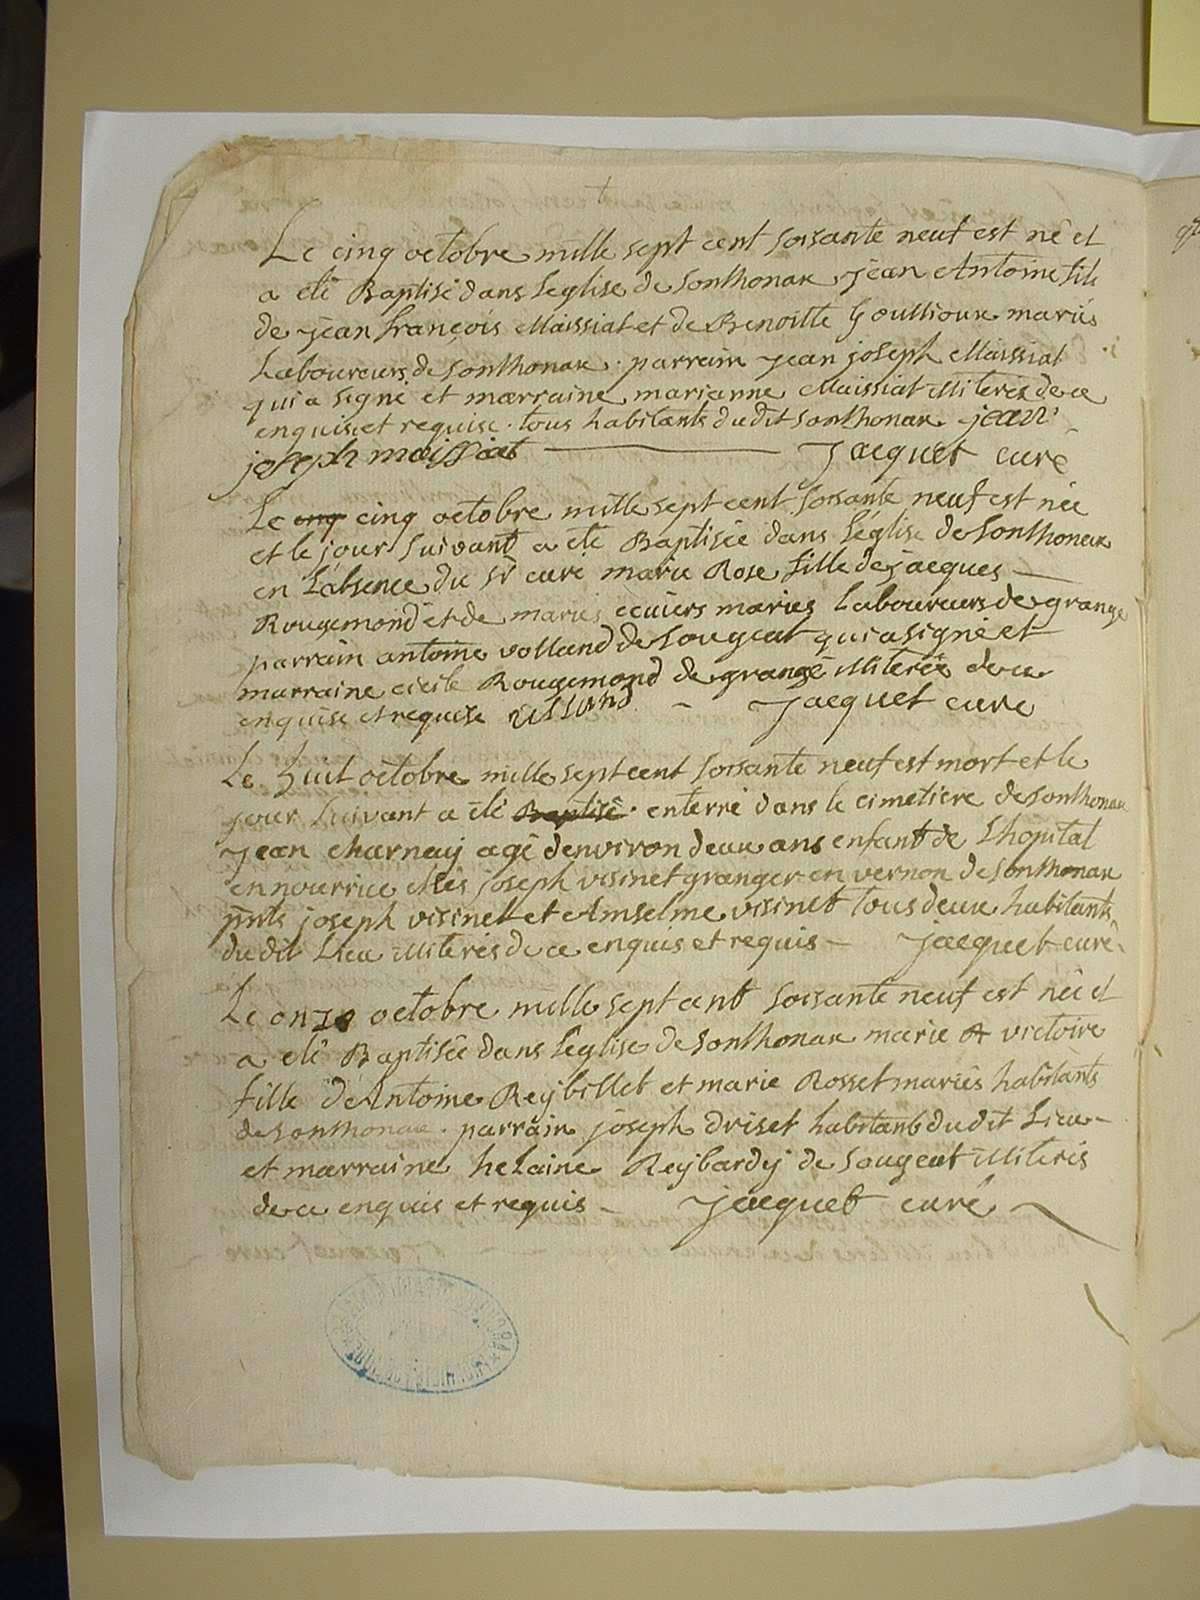 Le cinq octobre mille sept cent soisante neuf est né et
a eté Baptisé dans leglise de sonthonax jean Antoine fils
de jean françois Maissiat et de Benoitte Goullioux mariés
Laboureurs de Sonthonax. parrain jean joseph Maissiat
qui a signé et marraine marianne Maissiat illiterés de ce
enquise et requise. tous habitants du dit Sonthonax jean
joseph maissiat Jacquet curé
Le cinq cinq octobre mille sept cent soisante neuf est née
et le jour suivant a eté Baptisée dans léglise de sonthonax
en l'absence du sr curé marie Rose fille de jacques
Rougemond et de marie ecuiers mariés laboureurs de grange
parrain antoine volland de Sougeat qui a signé et
marraine cicile Rougemond de grange illiterée de ce
enquise et requise volland Jacquet curé
Le huit octobre mille sept cent soisante neuf est mort et le
jour suivant a eté Baptisé. enterré dans le cimetiere de sonthonax
Jean charnay agé denviron deux ans enfant de Lhopital
en nourrice chés joseph visinet granger en vernon de sonthonax
pnts joseph visinet et Anselme visinet tous deux habitants
du dit Lieu illiterés de ce enquis et requis Jacquet curé
Le onze octobre mille sept cent soisante neuf est née et
a eté Baptisée dans leglise de sonthonax marie victoire
fille d'Antoine Reybillet et marie Rosset mariés habitants
de sonthonax. parrain joseph driset habitant du dit Lieu
et marraine helaine Reybardy de sougeat illiterés
de ce enquis et requis Jacquet curé